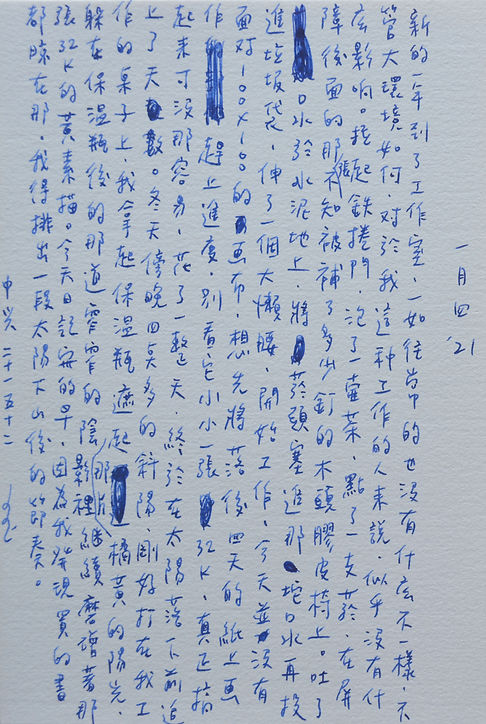 一月四 '21
新的一年到了工作室,一如往常的也沒有什麼不一樣,不
管大環境如何,對於我這種工作的人來說,似乎沒有什
麼影響。捲起鐵捲門,泡了一壺茶,點了一支菸,在屏
障後面的那張不知被補了多少釘的木頭膠皮椅上。吐了
口水於水泥地上,將菸頭塞進那坨口水再投
進垃圾袋,伸了一個大懶腰,開始工作,今天並沒有
面對100x100的畫布,想先將落後四天的紙上畫
作趕上進度,別看它小小一張32K,真正搞
起來可沒那容易,花了一整天,終於在太陽落下前追
上了天數。冬天傍晚四點多的斜陽,剛好打在我工
作的桌子上,我拿起保溫瓶遮起那片橘黃的陽光,
躲在保溫瓶後的那道窄窄的陰影裡繼續磨蹭著那
張32K的黃素描。今天日記寫的早,因為我發現買的書
都晾在那,我得排出一段太陽下山後的節奏。
二十一五十二